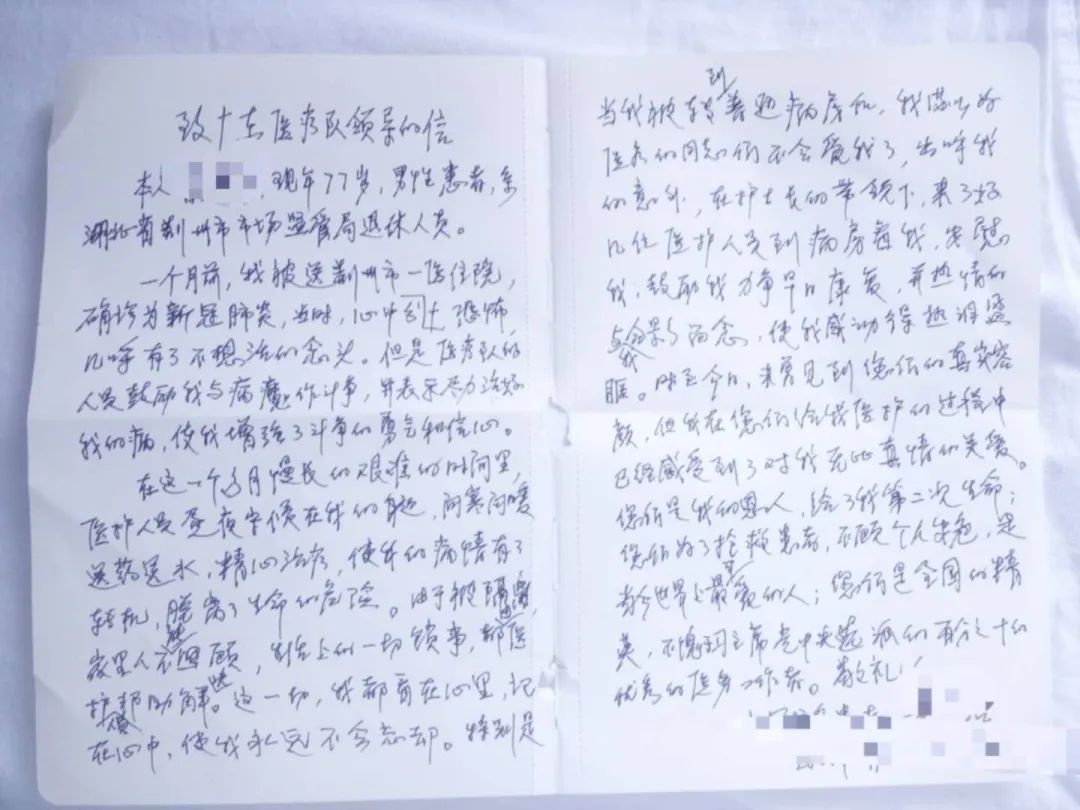 致十东医疗队领导的信
本人 ,现年77岁,男性患者,系
湖北省荆州市市场监管局退休人员。
一个月前,我被送荆州市一医住院,
确诊为新冠肺炎,当时,心中 恐怖,
几呼有了不想治的念头。但是医疗队的
人员鼓励我与病魔作斗争,并表示尽力治好
我的病,使我增强了斗争的勇气和信心。
在这一个多月慢长的艰难的时间里,
医护人员昼夜守候在我的身边,问寒问暖
送药送水,精心治疗,使我的病情有了
转机,脱离了生命的危险。由于被隔离,
家里人不能回顾,生活上的一切锁事,都医
护帮助解 。这一切,我都看在心里,记
在心中,使我永远不会忘却。特别是
当我被转到普通病房后,我满以为
医务的同志们不会管我了,出呼我
的意外,在护士长的带领下,来了好
几位医护人员到病房看我,安慰
我,鼓励我力争早日康复,并热情的
与我合影了留念,使我感动得热泪盈
眶。时至今日,未曾见到您们的真实容
颜,但我在您们给我医护的过程中
已经感受到了对我无比真情的关爱。
您们是我的恩人,给了我第二次生命;
您们为了抢救患者,不顾个人安危,是
当今世界上最可爱的人;您们是全国的精
英,不愧 主席党中央选派的百分之十的
优秀的医务工作者。敬礼!